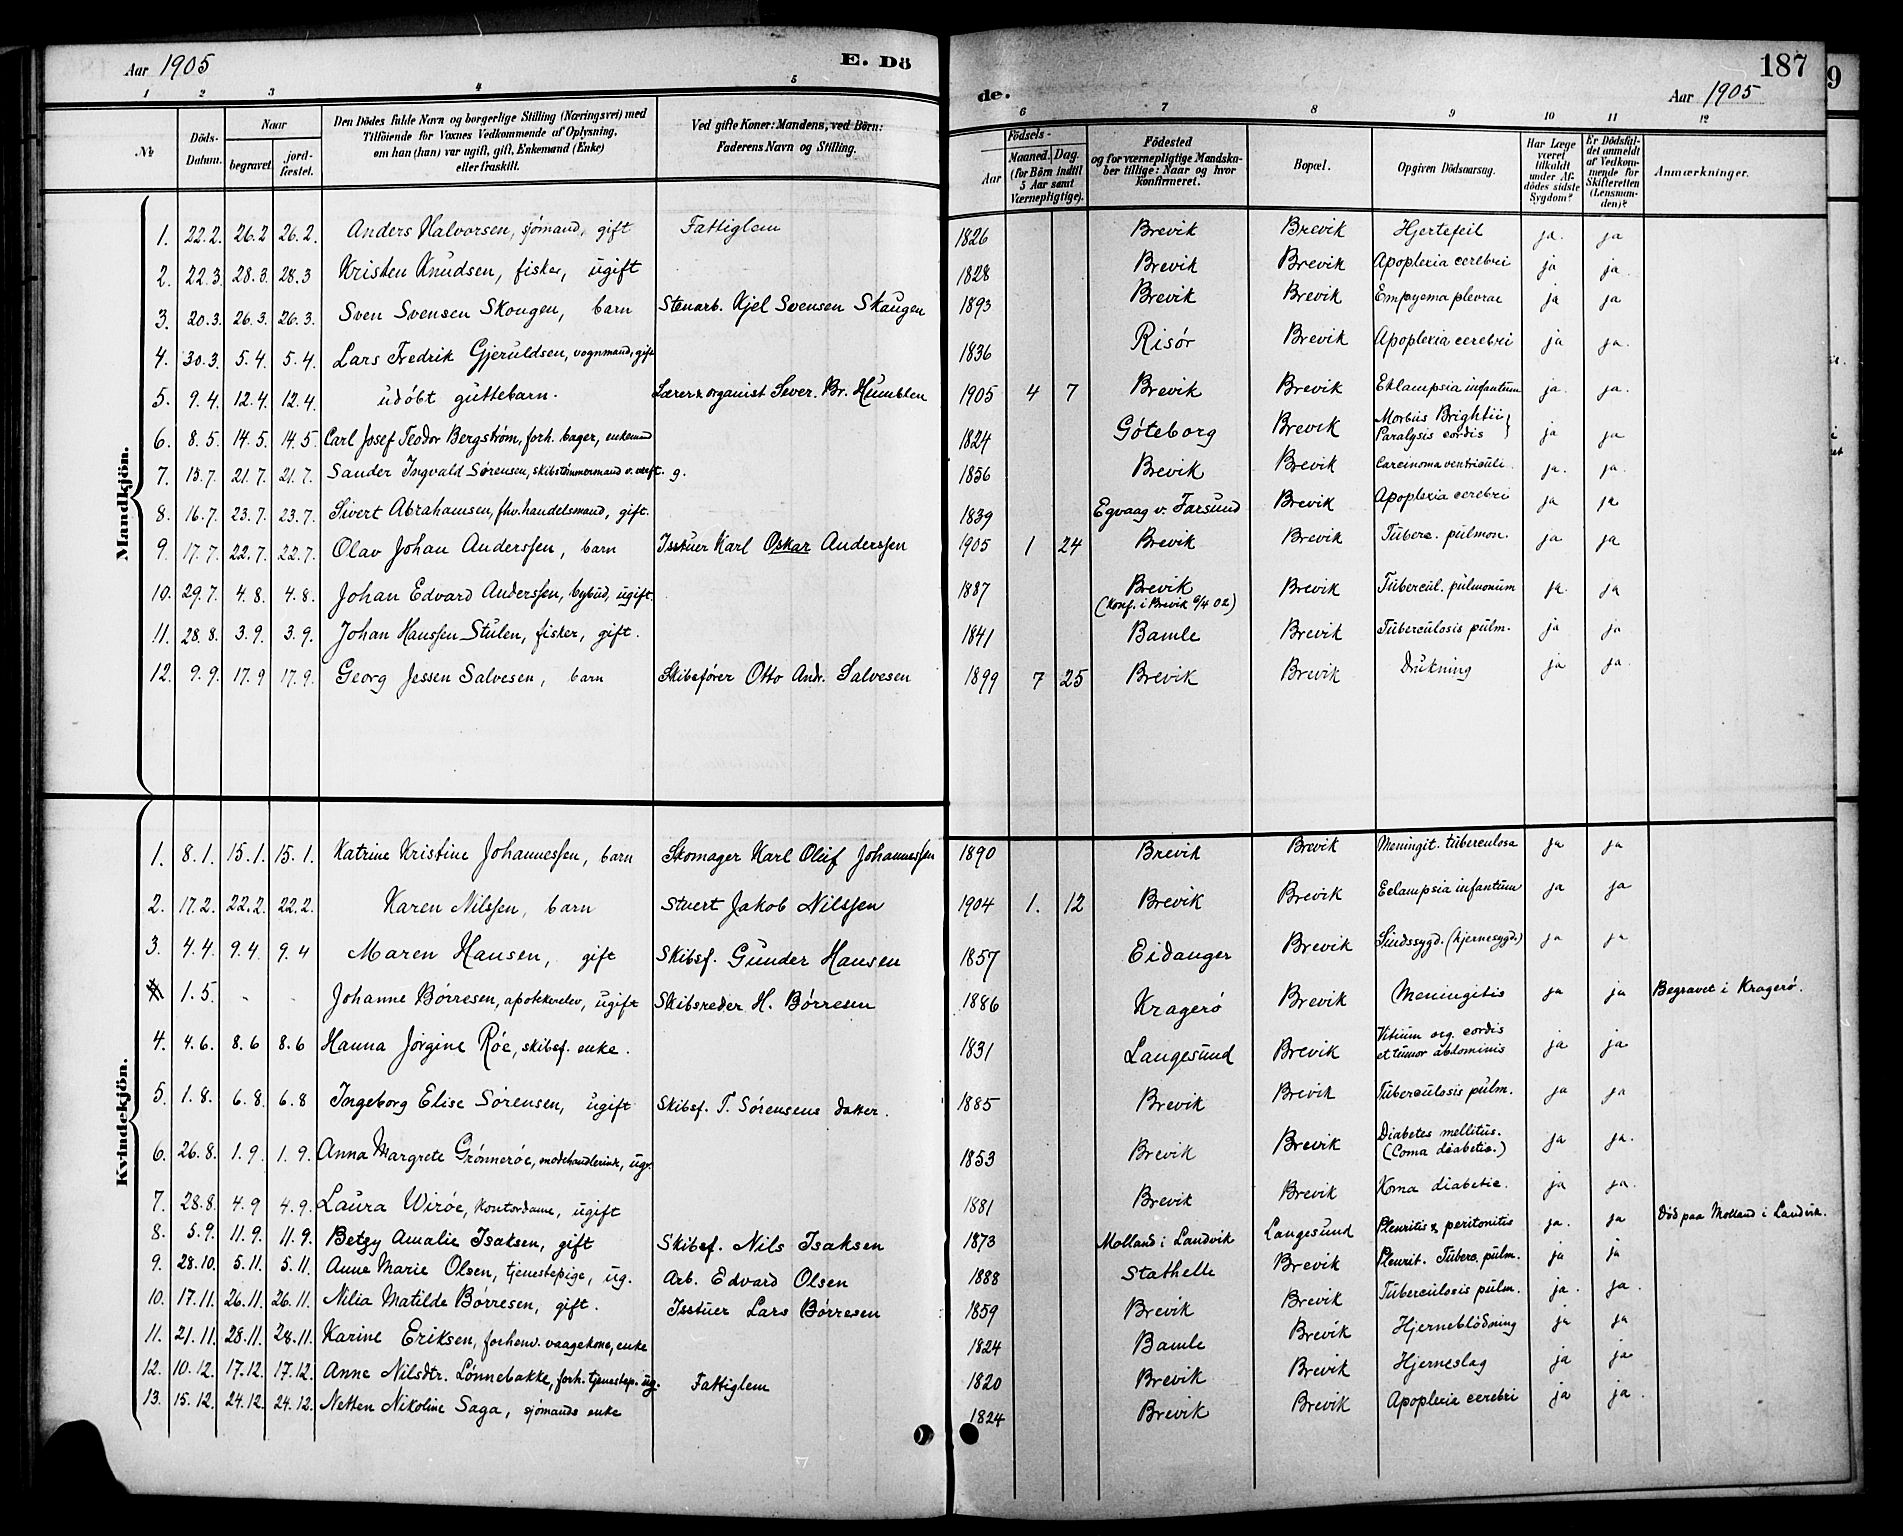 Aar 1905
E. Dö
de.
187
Aar 1905
1 2 3 4 5 6 7 8 9 10 11 12
№
Döds-Datum.
Naar
begravet.
jordfæstet.
Den Dödes fulde Navn og borgerlige Stilling (Næringsvei) med
Tilföiende for Voxnes Vedkommende af Oplysning,
om han (hun) var ugift, gift, Enkemand (Enke)
eller fraskilt.
Ved gifte Koner: Mandens, ved Börn:
Faderens Navn og Stilling.
Födsels-
Aar
Maaned.
Dag.
(for Börn indtil
5 Aar samt
Værnepligtige).
Födested
og for værnepligtige Mandska-
ber tillige: Naar og hvor
konfirmeret.
Bopæl.
Opgiven Dödsaarsag.
Har Læge
været
tilkaldt
under Af-
dödes sidste
Sygdom?
Er Dödsfal-
det anmeldt
af Vedkom-
mende for
Skifteretten
(Lensman-
den)?
Anmærkninger.
Mandkjön.
1. 22.2. 26.2 26.2. Anders Halvorsen, sjømand, gift Fattiglem 1826 Brevik Brevik Hjertefeil ja. ja
2. 22.3. 28.3. 28.3 Kristen Knudsen, fisker, ugift 1828 Brevik Brevik Apoplexia cerebri ja ja.
3. 20.3. 26.3. 26.3. Sven Svensen Skougen, barn Stenarb. Kjel Svensen Skaugen 1893 Brevik Brevik Empyema plevrae ja ja
4. 30.3. 5.4. 5.4 Lars Fredrik Gjeruldsen, vognmand, gift 1836 Risör Brevik Apoplexia cerebri ja ja.
5. 9.4. 12.4. 12.4. udöbt guttebarn. Lærer & organist Sever. Br. Humblen 1905 4 7 Brevik Brevik Eklampsia infantum ja. ja.
6. 8.5. 14.5. 14.5. Carl Josef Teodor Bergstrøm, forh. bager, enkemand 1824 Göteborg Brevik Morbus Brightii
Paralysis cordis ja ja
7. 13.7. 21.7. 21.7. Sander Ingvald Sørensen, skibstømmermand v. verft. g. 1856 Brevik Brevik Carcinoma ventriculi. ja. ja.
8. 16.7. 23.7. 23.7. Sivert Abrahamsen, fhv. handelsmand, gift. 1839 Egvaag v. Farsund Brevik Apoplexia cerebri ja ja
9. 17.7. 22.7. 22.7. Olav Johan Anderssen, barn Isstuer Karl Oskar Anderssen 1905 1 24 Brevik Brevik Tuberc. pulmon. ja ja
10. 29.7. 4.8. 4.8. Johan Edvard Anderssen, bybud, ugift. 1887 Brevik
(Konf. i Brevik 6/4 02) Brevik Tubercul. pulmonum ja. ja
11. 28.8. 3.9. 3.9. Johan Hanssen Stulen, fisker, gift. 1841 Bamle Brevik Tuberculosis pulm. ja ja
12. 9.9. 17.9 17.9. Georg Jessen Salvesen, barn Skibsfører Otto Andr. Salvesen 1899 7 25 Brevik Brevik Drukning ja ja.
Kvindekjön.
1. 8.1. 15.1. 15.1. Katrine Kristine Johannessen, barn Skomager Karl Oluf Johannessen 1890 Brevik Brevik Meningit. tuberculosa ja ja
2. 17.2. 22.2. 22.2. Karen Nilssen, barn Stuert Jakob Nilssen 1904 1. 12 Brevik Brevik Eclampsia infantum ja ja
3. 4.4. 9.4. 9.4 Maren Hansen, gift Skibsf. Gunder Hansen 1857 Eidanger Brevik Sindssygd. (hjernesygd.) ja ja
1.5. - - Johanne Børresen, apotekerelev, ugift Skibsreder H. Børresen 1886 Kragerö Brevik Meningitis ja ja Begravet i Kragerö.
4. 4.6. 8.6 8.6 Hanna Jörgine Röe, skibsf. enke. 1831 Langesund Brevik Vitium org. cordis
et tumor abdominis ja ja
5. 1.8. 6.8. 6.8 Ingeborg Elise Sørensen, ugift Skibsf. T. Sørensens datter. 1885 Brevik Brevik Tuberculosis pulm. ja ja
6. 26.8. 1.9. 1.9. Anna Margrete Grønnerøe, modehandlerinde, ug. 1853 Brevik Brevik Diabetes mellitus.
(Coma diabetic.) ja ja.
7. 28.8. 4.9 4.9. Laura Wirøe, kontordame, ugift 1881 Brevik Brevik Koma diabetic. ja ja.
8. 5.9. 11.9. 11.9. Betzy Amalie Isaksen, gift Skibsf. Nils Isaksen 1873 Molland i Landvik Langesund Pleuritis & peritonitis ja. ja Död paa Molland i Landvik.
9. 28.10. 5.11. 5.11. Anne Marie Olsen, tjenestepige, ug. Arb. Edvard Olsen 1888 Stathelle Brevik Pleurit. Tuberc. pulm. ja ja
10. 17.11. 26.11. 26.11. Nilia Matilde Børresen, gift. Isstuer Lars Børresen 1859 Brevik Brevik Tuberculosis pulm. ja. ja.
11. 21.11. 28.11. 28.11. Karine Eriksen, forhenv. vaagekone, enke 1824 Bamle Brevik Hjerneblödning ja ja
12. 10.12. 17.12. 17.12. Anne Nilsdtr. Lønnebakke, forh. tjenestep. ug. Fattiglem 1820 Brevik Brevik Hjerneslag ja ja
13. 15.12. 24.12. 24.12. Netten Nikoline Saga, sjømands enke 1824 Brevik Brevik Apoplexia cerebri ja ja.